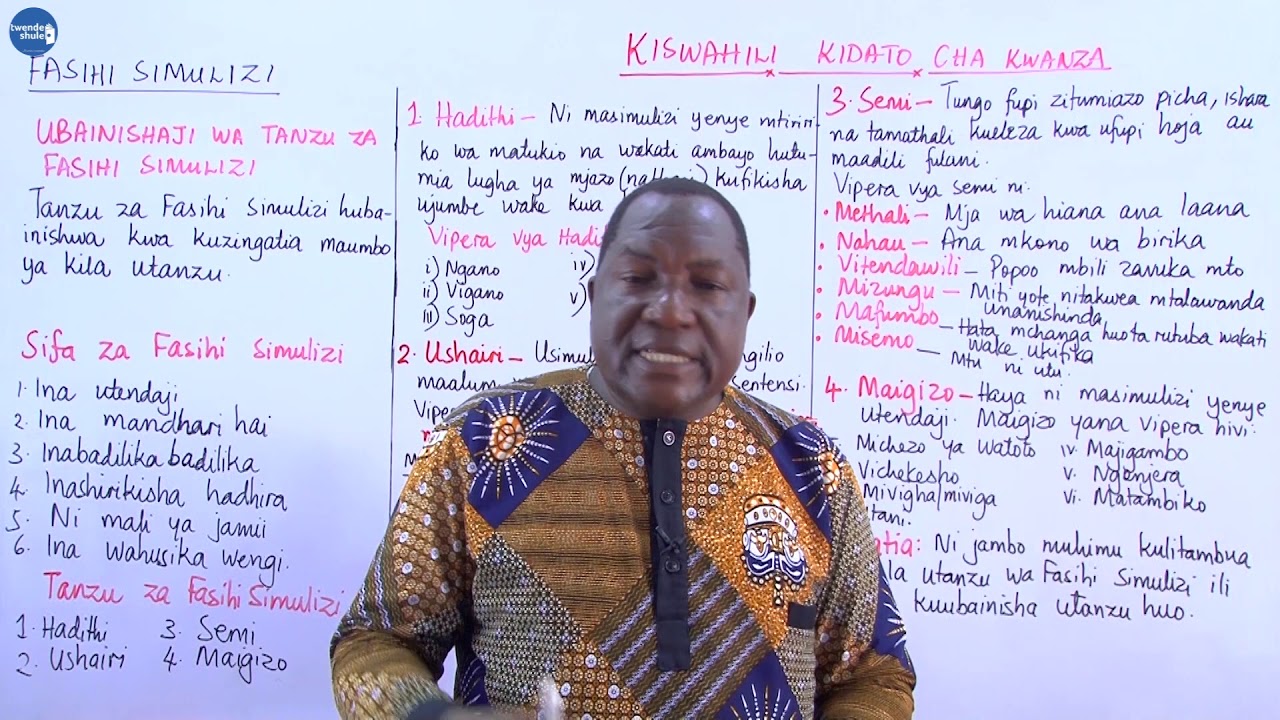 twende
shule
FASIHI SIMULIZI
UBAINISHAJI WA TANZU ZA
FASIHI SIMULIZI
Tanzu za Fasihi Simulizi huba-
inishwa kwa kuzingatia maumbo
ya kila utanzu.
Sifa za Fasihi Simulizi
1. Ina utendaji
2. Ina mandhari hai
3. Inabadilika badilika
4. Inashirikisha hadhira
5. Ni mali ya jamii
6. Ina wahusika wengi.
Tanzu za Fasihi Simulizi
1. Hadithi 3. Semi
2. Ushairi 4. Maigizo
KISWAHILI KIDATO CHA KWANZA
1. Hadithi - Ni masimulizi yenye mtiriri-
ko wa matukio na wakati ambayo hutu-
mia lugha ya mjazo (nathari) kufikisha
ujumbe wake kwa
Vipera vya
i) Ngano iv)
ii) Vigano v)
iii) Soga
2. Ushairi -
maalum sentensi.
3. Semi - Tungo fupi zitumiazo picha, ishara
na tamathali kueleza kwa ufupi hoja au
maadili fulani.
Vipera vya semi ni:
• Methali - Mja wa hiana ana laana
• Nahau - Ana mkono wa birika
• Vitendawili - Popoo mbili zavuka mto
• Mizungu - Miti yote nitakwea mtalawanda
unanishinda
• Mafumbo - Hata mchanga huota rutuba wakati
wake ukifika
• Misemo - Mtu ni utu.
4. Maigizo - Haya ni masimulizi yenye
utendaji. Maigizo yana vipera hivi:
Michezo ya watoto iv. Majigambo
Vichekesho v. Ngonjera
Mivigha/miviga vi. Matambiko
Ni jambo muhimu kulitambua
utanzu wa Fasihi Simulizi ili
kuubainisha utanzu huo.